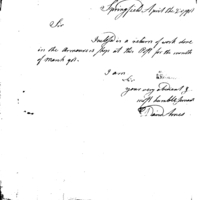 Springfield April 1st 1798
Sir
Inclosed is a return of work done
in the Armourers shops at this Post for the month
of March 98.
I am
Sir
your very obedient &
most humble servant
David Ames